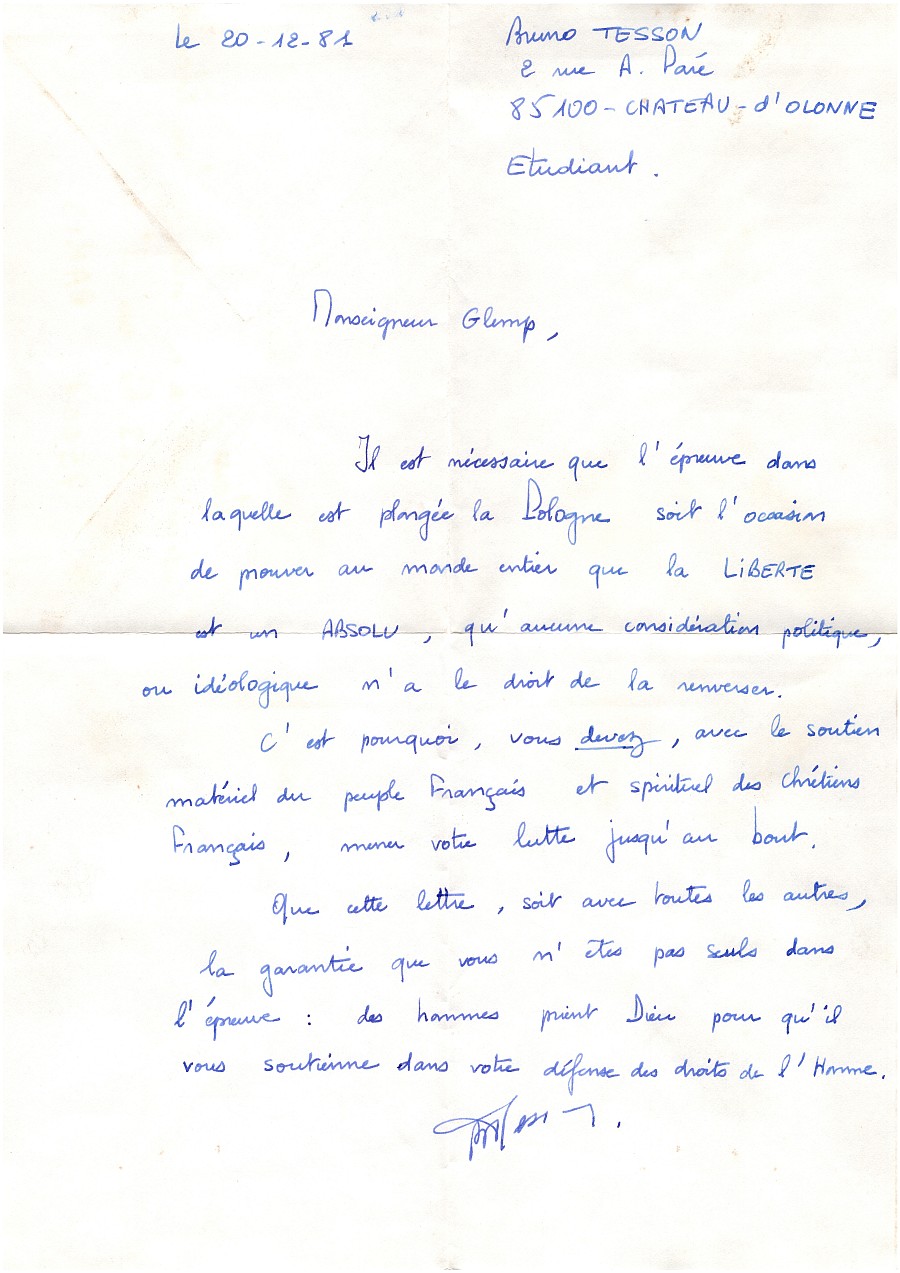 Le 20-12-81
Bruno TESSON
2 rue A. Paré
85100 - CHATEAU - d'OLONNE
Etudiant.
Monseigneur Glemp,
Il est nécessaire que l'épreuve dans
laquelle est plongée la Pologne soit l'occasion
de prouver au monde entier que la LIBERTE
est un ABSOLU, qu'aucune considération politique,
ou idéologique n'a le droit de la renverser.
C'est pourquoi, vous devez, avec le soutien
matériel du peuple Français et spirituel des chrétiens
Français, mener votre lutte jusqu'au bout.
Que cette lettre, soit avec toutes les autres,
la garantie que vous n'êtes pas seuls dans
l'épreuve : des hommes prient Dieu pour qu'il
vous soutienne dans votre défense des droits de l'Homme.